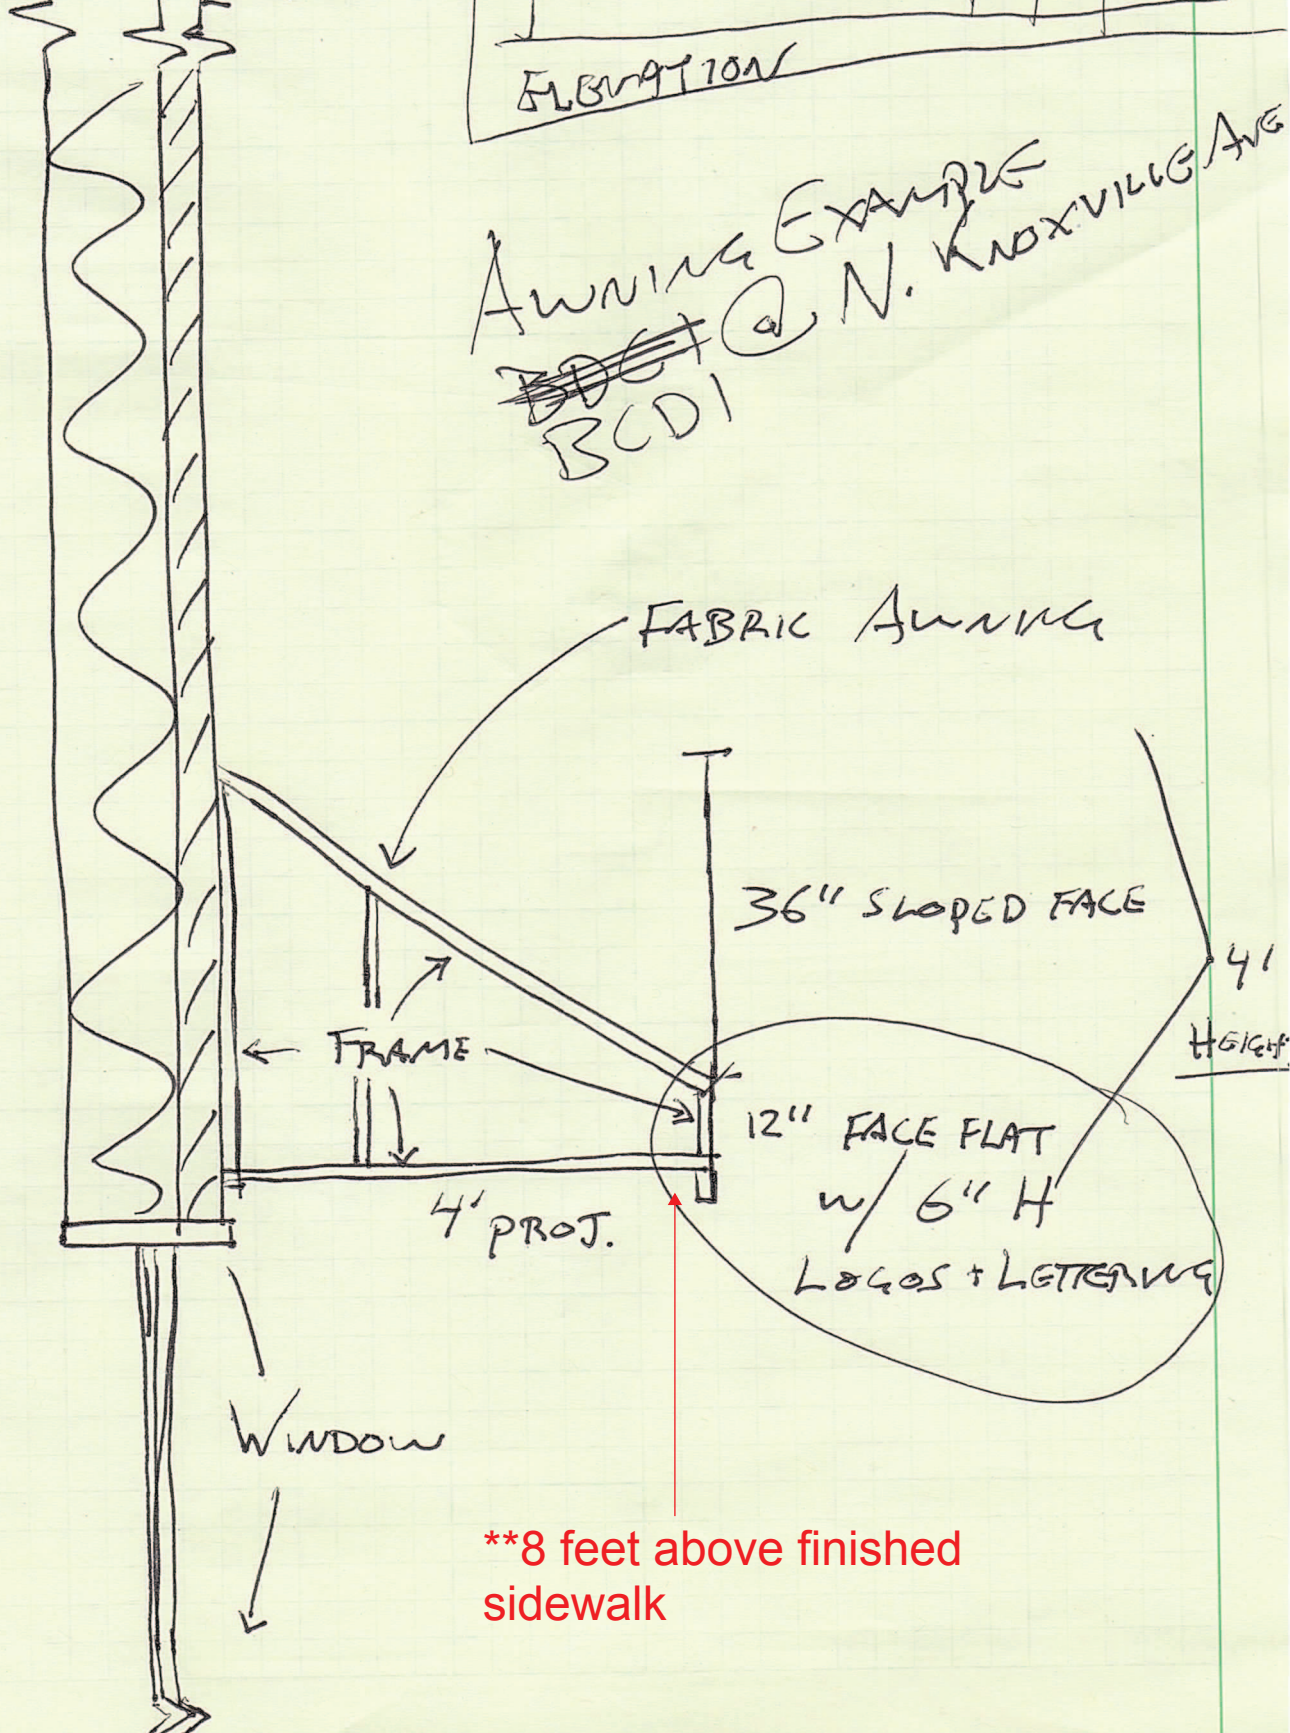 ELEVATION
AWNING EXAMPLE
@ N. KNOXVILLE AVE
BCDI
FABRIC AWNING
36" SLOPED FACE
4'
HEIGHT
FRAME
12" FACE FLAT
w/ 6" H
LOGOS + LETTERING
4' PROJ.
WINDOW
**8 feet above finished
sidewalk